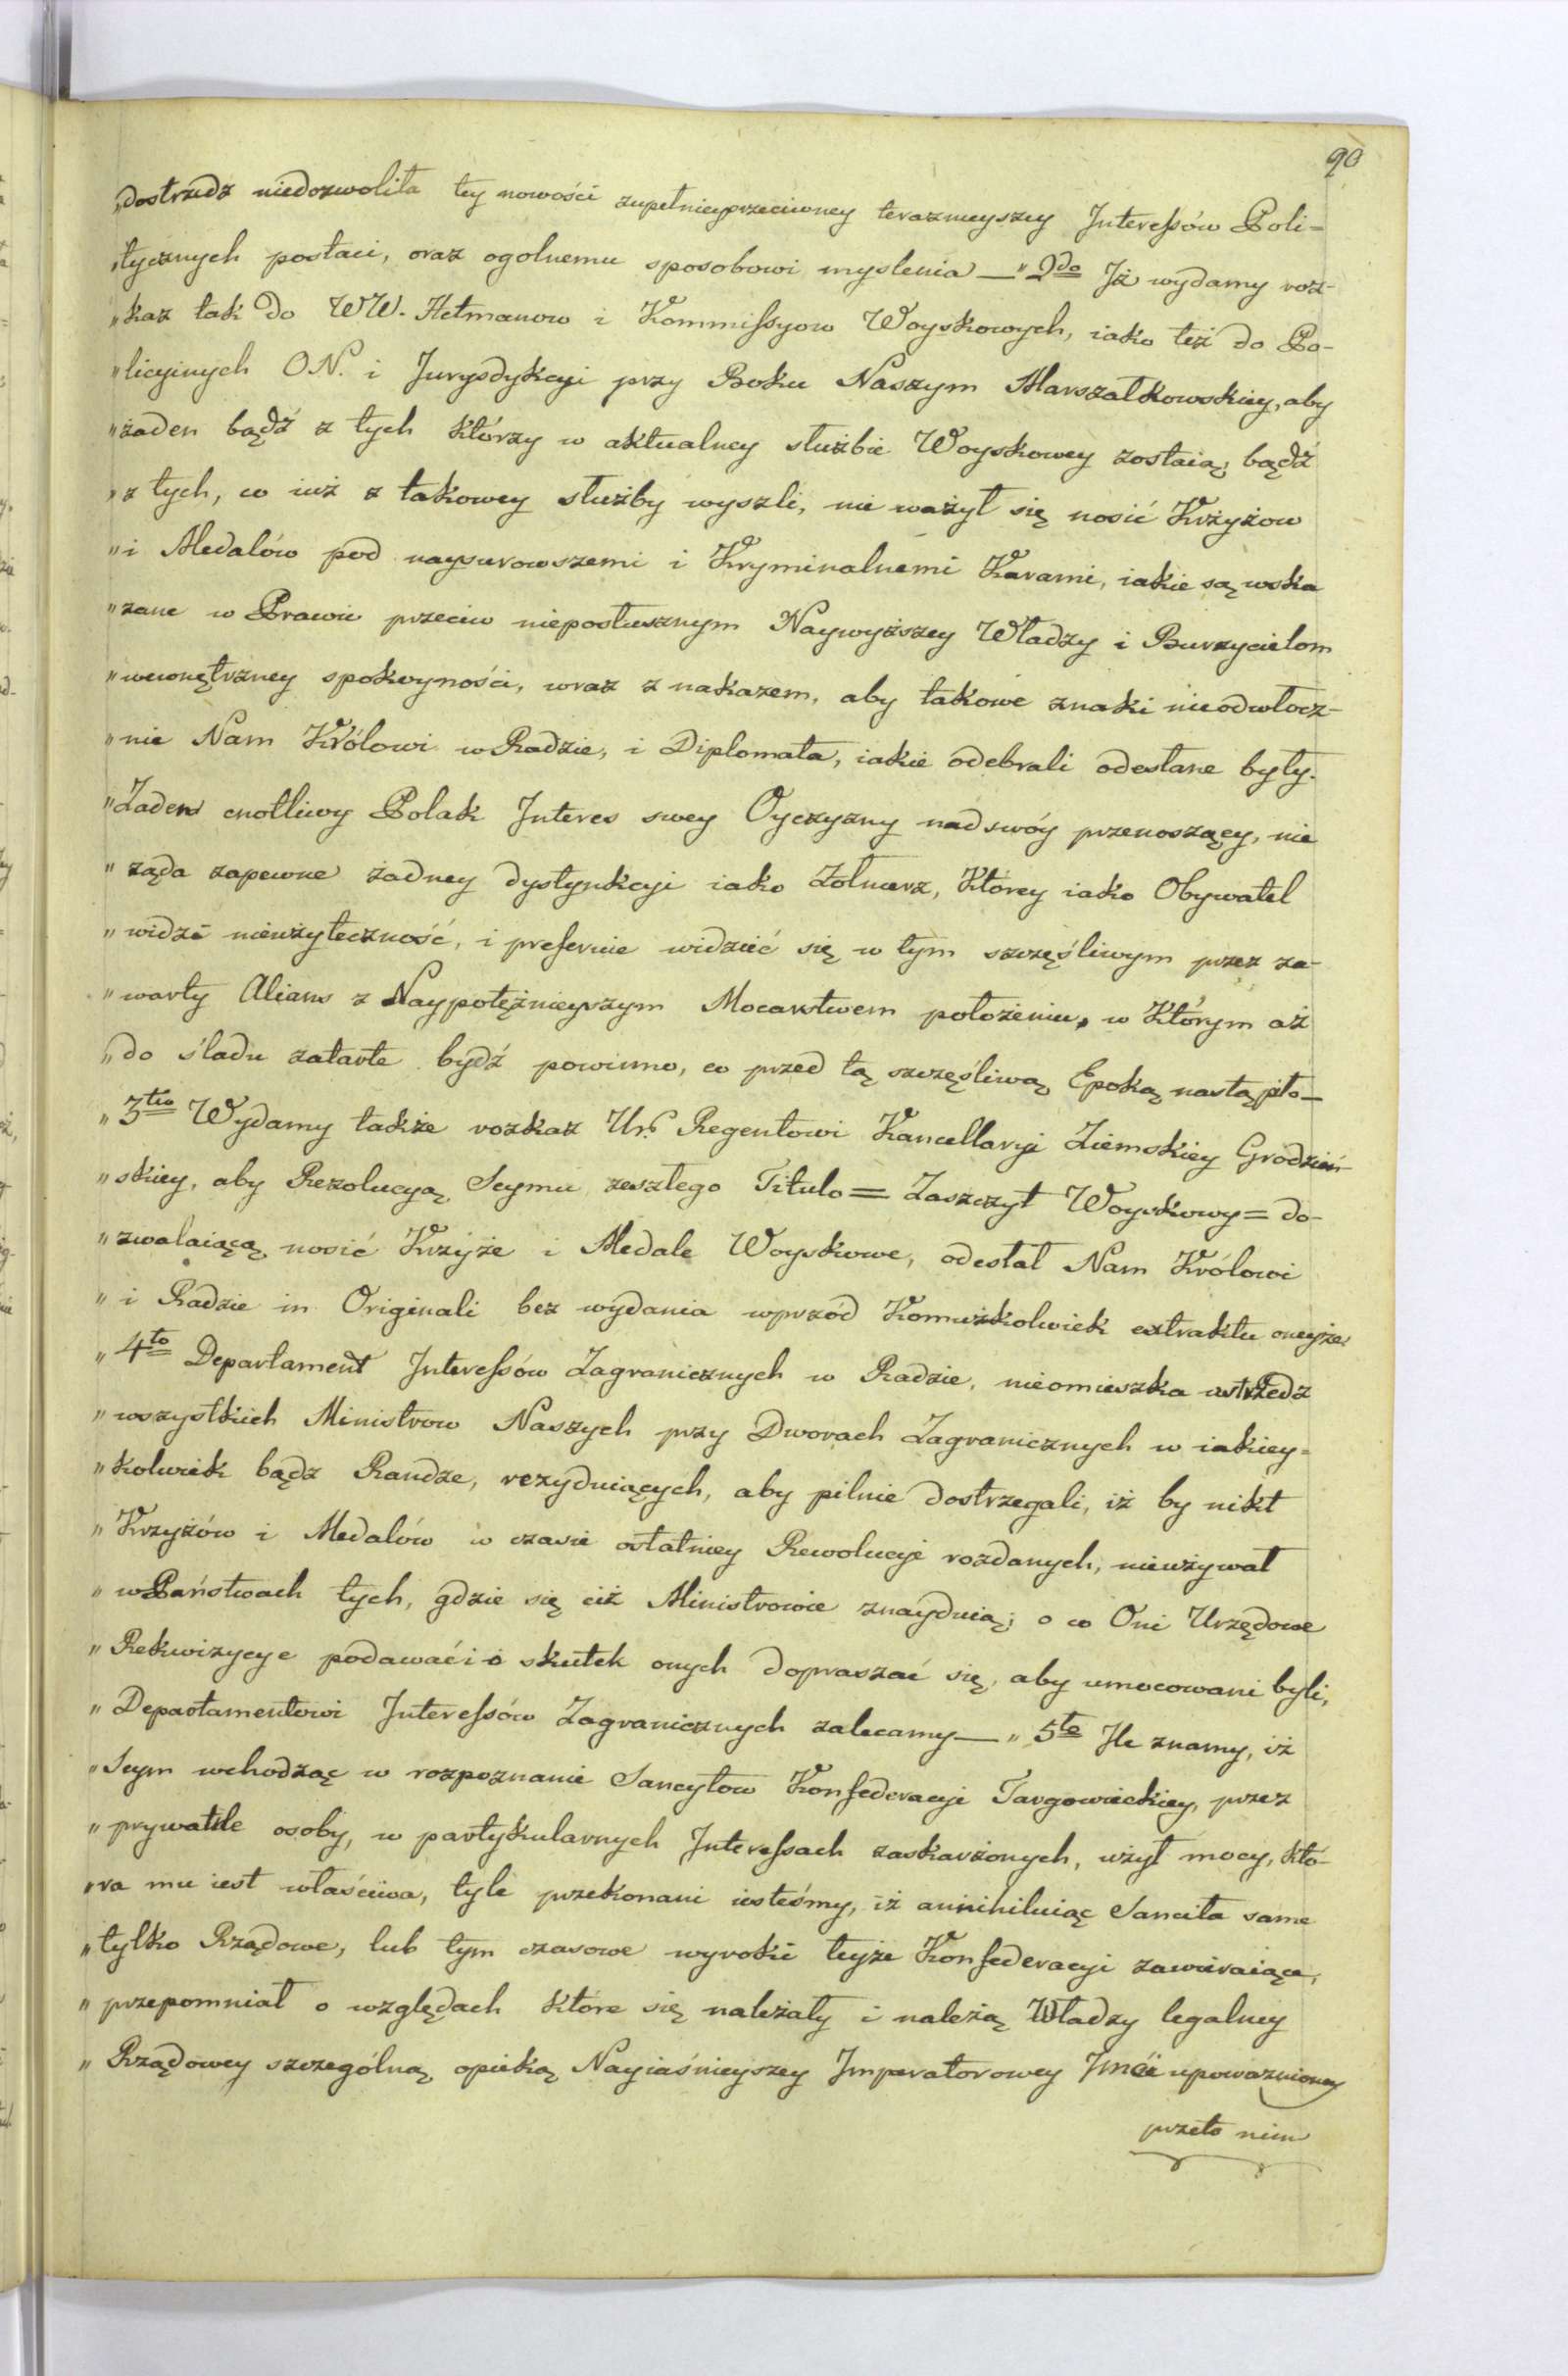 90
„dostrzedz niedozwoliła tey nowości zupełnieyprzeciwney terazneyszey Interessów Poli=
„tycznych postaci, oraz ogolnemu sposobowi myslenia — „2do Iż wydamy roz-
„kaz tak do WW. Hetmanow i Kommissyow Woyskowych, iako też do Po-
„licyinych O.N. i Jurysdykcyi przy Boku Naszym Marszałkowskiey, aby
„żaden bądź z tych którzy w aktualney służbie Woyskowey zostaią, bądź
„z tych, co iuż z takowey służby wyszli, nie ważył się nosić Krzyżow
„i Medalów pod naysurowszemi i Kryminalnemi Karami, iakie są wska
„zane w Prawie przeciw nieposłusznym Naywyższey Władzy i Burzycielom
„wewnętrzney spokoyności, wraz z nakazem, aby takowe znaki nieodwłocz-
„nie Nam Królowi w Radzie, i Diplomata, iakie odebrali odesłane były.
„Żaden cnotliwy Polak Interes swey Oyczyzny nad swóy przenoszący, nie
„żąda zapewne żadney dystynkcyi iako Żołnierz, Którey iako Obywatel
„widzi nieużyteczność, i preferuie widzieć się w tym szczęśliwym przez za-
„warty Alians z Naypotężnieyszym Mocarstwem położeniu, w Którym aż
„do śladu zatarte bydź powinno, co przed tą szczęśliwą Epoką nastąpiło —
„3tio Wydamy także rozkaz Ur. Regentowi Kancellaryi Ziemskiey Grodzień-
„skiey, aby Rezolucyą Seymu zeszłego Titulo = Zaszczyt Woyskowy = do-
„zwalaiącą nosić Krzyże i Medale Woyskowe, odesłał Nam Królowi
„i Radzie in Originali bez wydania wprzód Komużkolwiek extraktu oneyże
„4to Departament Interessów Zagranicznych w Radzie, nieomieszka ostrzedz
„wszystkich Ministrow Naszych przy Dworach Zagranicznych w iakiey=
„kolwiek bądz Randze, rezyduiących, aby pilnie dostrzegali, iż by nikt
„Krzyżów i Medalów w czasie ostatniey Rewolucyi rozdanych, nieużywał
„w Państwach tych, gdzie się ciż Ministrowie znayduią; o co Oni Urzędowe
„Rekwizycye podawać i o skutek onych dopraszać się, aby umocowani byli,
„Departamentowi Interessów Zagranicznych zalecamy — „5to Ile znamy, iż
„Seym wchodząc w rozpoznanie Sancytow Konfederacyi Targowickiey, przez
„prywatne osoby, w partykularnych Interessach zaskarżonych, użył mocy, któ-
„ra mu iest właściwa, tyle przekonani iesteśmy, iż annihiluiąc Sancita same
„tylko Rządowe, lub tym czasowe wyroki teyże Konfederacyi zawieraiące,
„przepomniał o względach które się należały i należą Władzy legalney
„Rządowey szczególną opieką Nayiaśnieyszey Imperatorowey Jmći upoważnioney
przeto nim